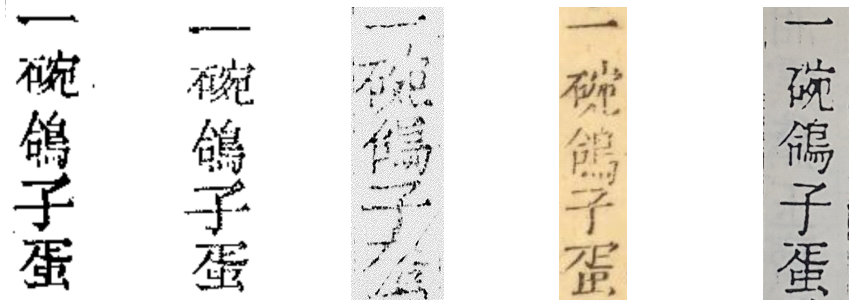 一碗鴿子蛋
一碗鴿子蛋
一碗鴿子
一碗鴿子蛋
一碗鴿子蛋